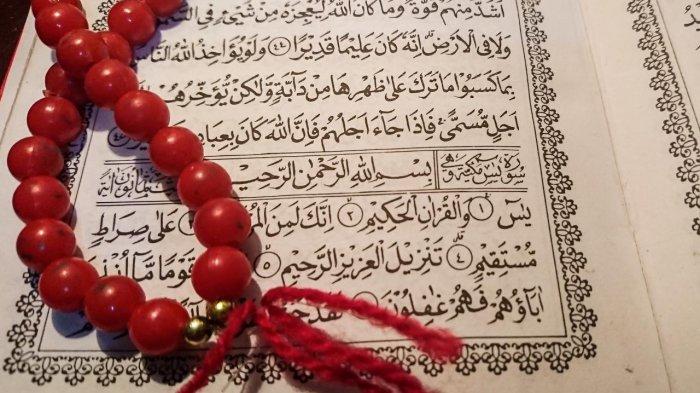 اَشَدَّ مِنْهُمْ قُوَّةً ؕ وَمَا كَانَ اللّٰهُ لِيُعْجِزَهٗ مِنْ شَيْءٍ فِي
وَلَا فِي الْاَرْضِ ؕ اِنَّهٗ كَانَ عَلِيْمًا قَدِيْرًا ﴿٤٤﴾ وَلَوْ يُؤَاخِذُ اللّٰهُ النَّاسَ
بِمَا كَسَبُوْا مَا تَرَكَ عَلٰى ظَهْرِهَا مِنْ دَآبَّةٍ وَّلٰكِنْ يُّؤَخِّرُهُمْ
اَجَلٍ مُّسَمًّى ۚ فَاِذَا جَآءَ اَجَلُهُمْ فَاِنَّ اللّٰهَ كَانَ
سُوْرَةُ يٰسٓ مَكِّيَّةٌ بِسْمِ اللّٰهِ الرَّحْمٰنِ الرَّحِيْمِ
يٰسٓ ﴿١﴾ وَالْقُرْاٰنِ الْحَكِيْمِ ﴿٢﴾ اِنَّكَ لَمِنَ عَلٰى صِرَاطٍ
مُّسْتَقِيْمٍ ﴿٤﴾ تَنْزِيْلَ الْعَزِيْزِ الرَّحِيْمِ ﴿٥﴾ قَوْمًا مَّآ اُنْذِرَ
اٰبَآؤُهُمْ فَهُمْ غٰفِلُوْنَ